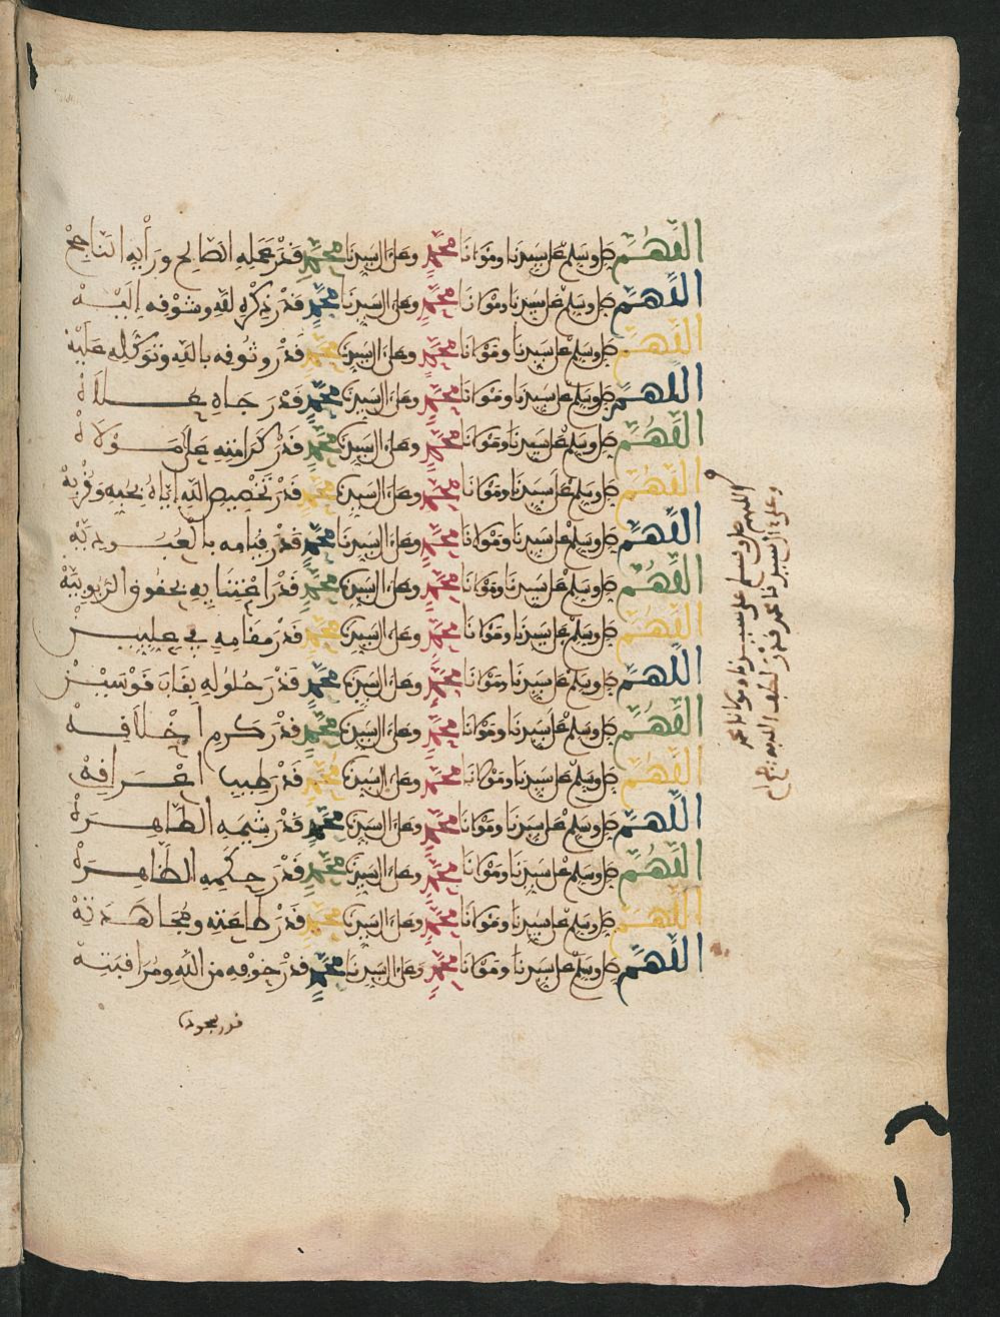 اللهم صل وسلم على سيدنا ومولانا محمد وعلى ءال سيدنا محمد قدر عمله الصالح ورأيه الناجح
اللهم صل وسلم على سيدنا ومولانا محمد وعلى ءال سيدنا محمد قدر ذكره لله وشوقه إليه
اللهم صل وسلم على سيدنا ومولانا محمد وعلى ءال سيدنا محمد قدر وثوقه بالله وتوكله عليه
اللهم صل وسلم على سيدنا ومولانا محمد وعلى ءال سيدنا محمد قدر جاه علاه
اللهم صل وسلم على سيدنا ومولانا محمد وعلى ءال سيدنا محمد قدر كرامته على مولاه
اللهم صل وسلم على سيدنا ومولانا محمد وعلى ءال سيدنا محمد قدر تخصيص الله إياه بحبه وقربه
اللهم صل وسلم على سيدنا ومولانا محمد وعلى ءال سيدنا محمد قدر قيامه بالعبودية
اللهم صل وسلم على سيدنا ومولانا محمد وعلى ءال سيدنا محمد قدر اعتنايه بحقوق الربوبية
اللهم صل وسلم على سيدنا ومولانا محمد وعلى ءال سيدنا محمد قدر مقامه في عليين
اللهم صل وسلم على سيدنا ومولانا محمد وعلى ءال سيدنا محمد قدر حلوله بقاب قوسين
اللهم صل وسلم على سيدنا ومولانا محمد وعلى ءال سيدنا محمد قدر كرم اخلاقه
اللهم صل وسلم على سيدنا ومولانا محمد وعلى ءال سيدنا محمد قدر طيب اعراقه
اللهم صل وسلم على سيدنا ومولانا محمد وعلى ءال سيدنا محمد قدر شيمه الطاهرة
اللهم صل وسلم على سيدنا ومولانا محمد وعلى ءال سيدنا محمد قدر حكمه الظاهرة
اللهم صل وسلم على سيدنا ومولانا محمد وعلى ءال سيدنا محمد قدر طاعته ومجاهدته
اللهم صل وسلم على سيدنا ومولانا محمد وعلى ءال سيدنا محمد قدر خوفه من الله ومراقبته
قدر سجوده
اللهم صل وسلم على سيدنا ومولانا محمد
وعلى ءال سيدنا محمد قدر